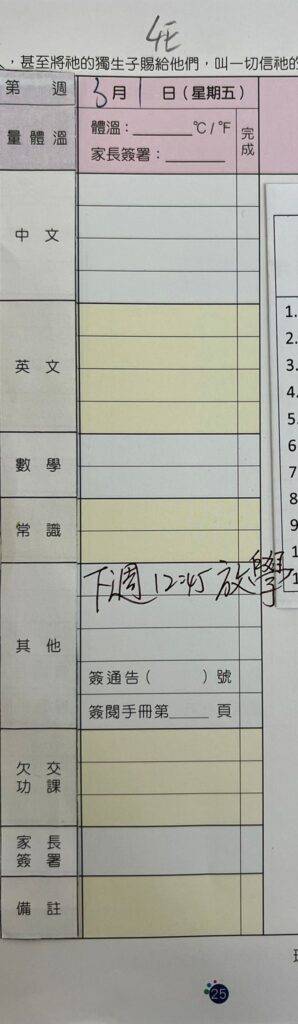 4E
，甚至將祂的獨生子賜給他們，叫一切信祂的
第 週
3月1日（星期五）
量體溫
體溫：______℃/℉
家長簽署：______
完成
中文
英文
數學
常識
其他
下週12:45放學
簽通告（ ）號
簽閱手冊第____頁
欠交
功課
家長
簽署
備註
1.
2.
3.
4.
5.
6
7
8
9
1
1
25